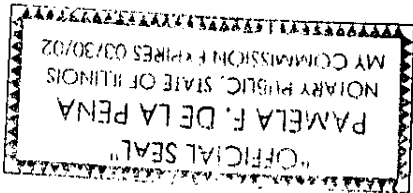 "OFFICIAL SEAL"
PAMELA F. DE LA PENA
NOTARY PUBLIC, STATE OF ILLINOIS
MY COMMISSION EXPIRES 03/30/02